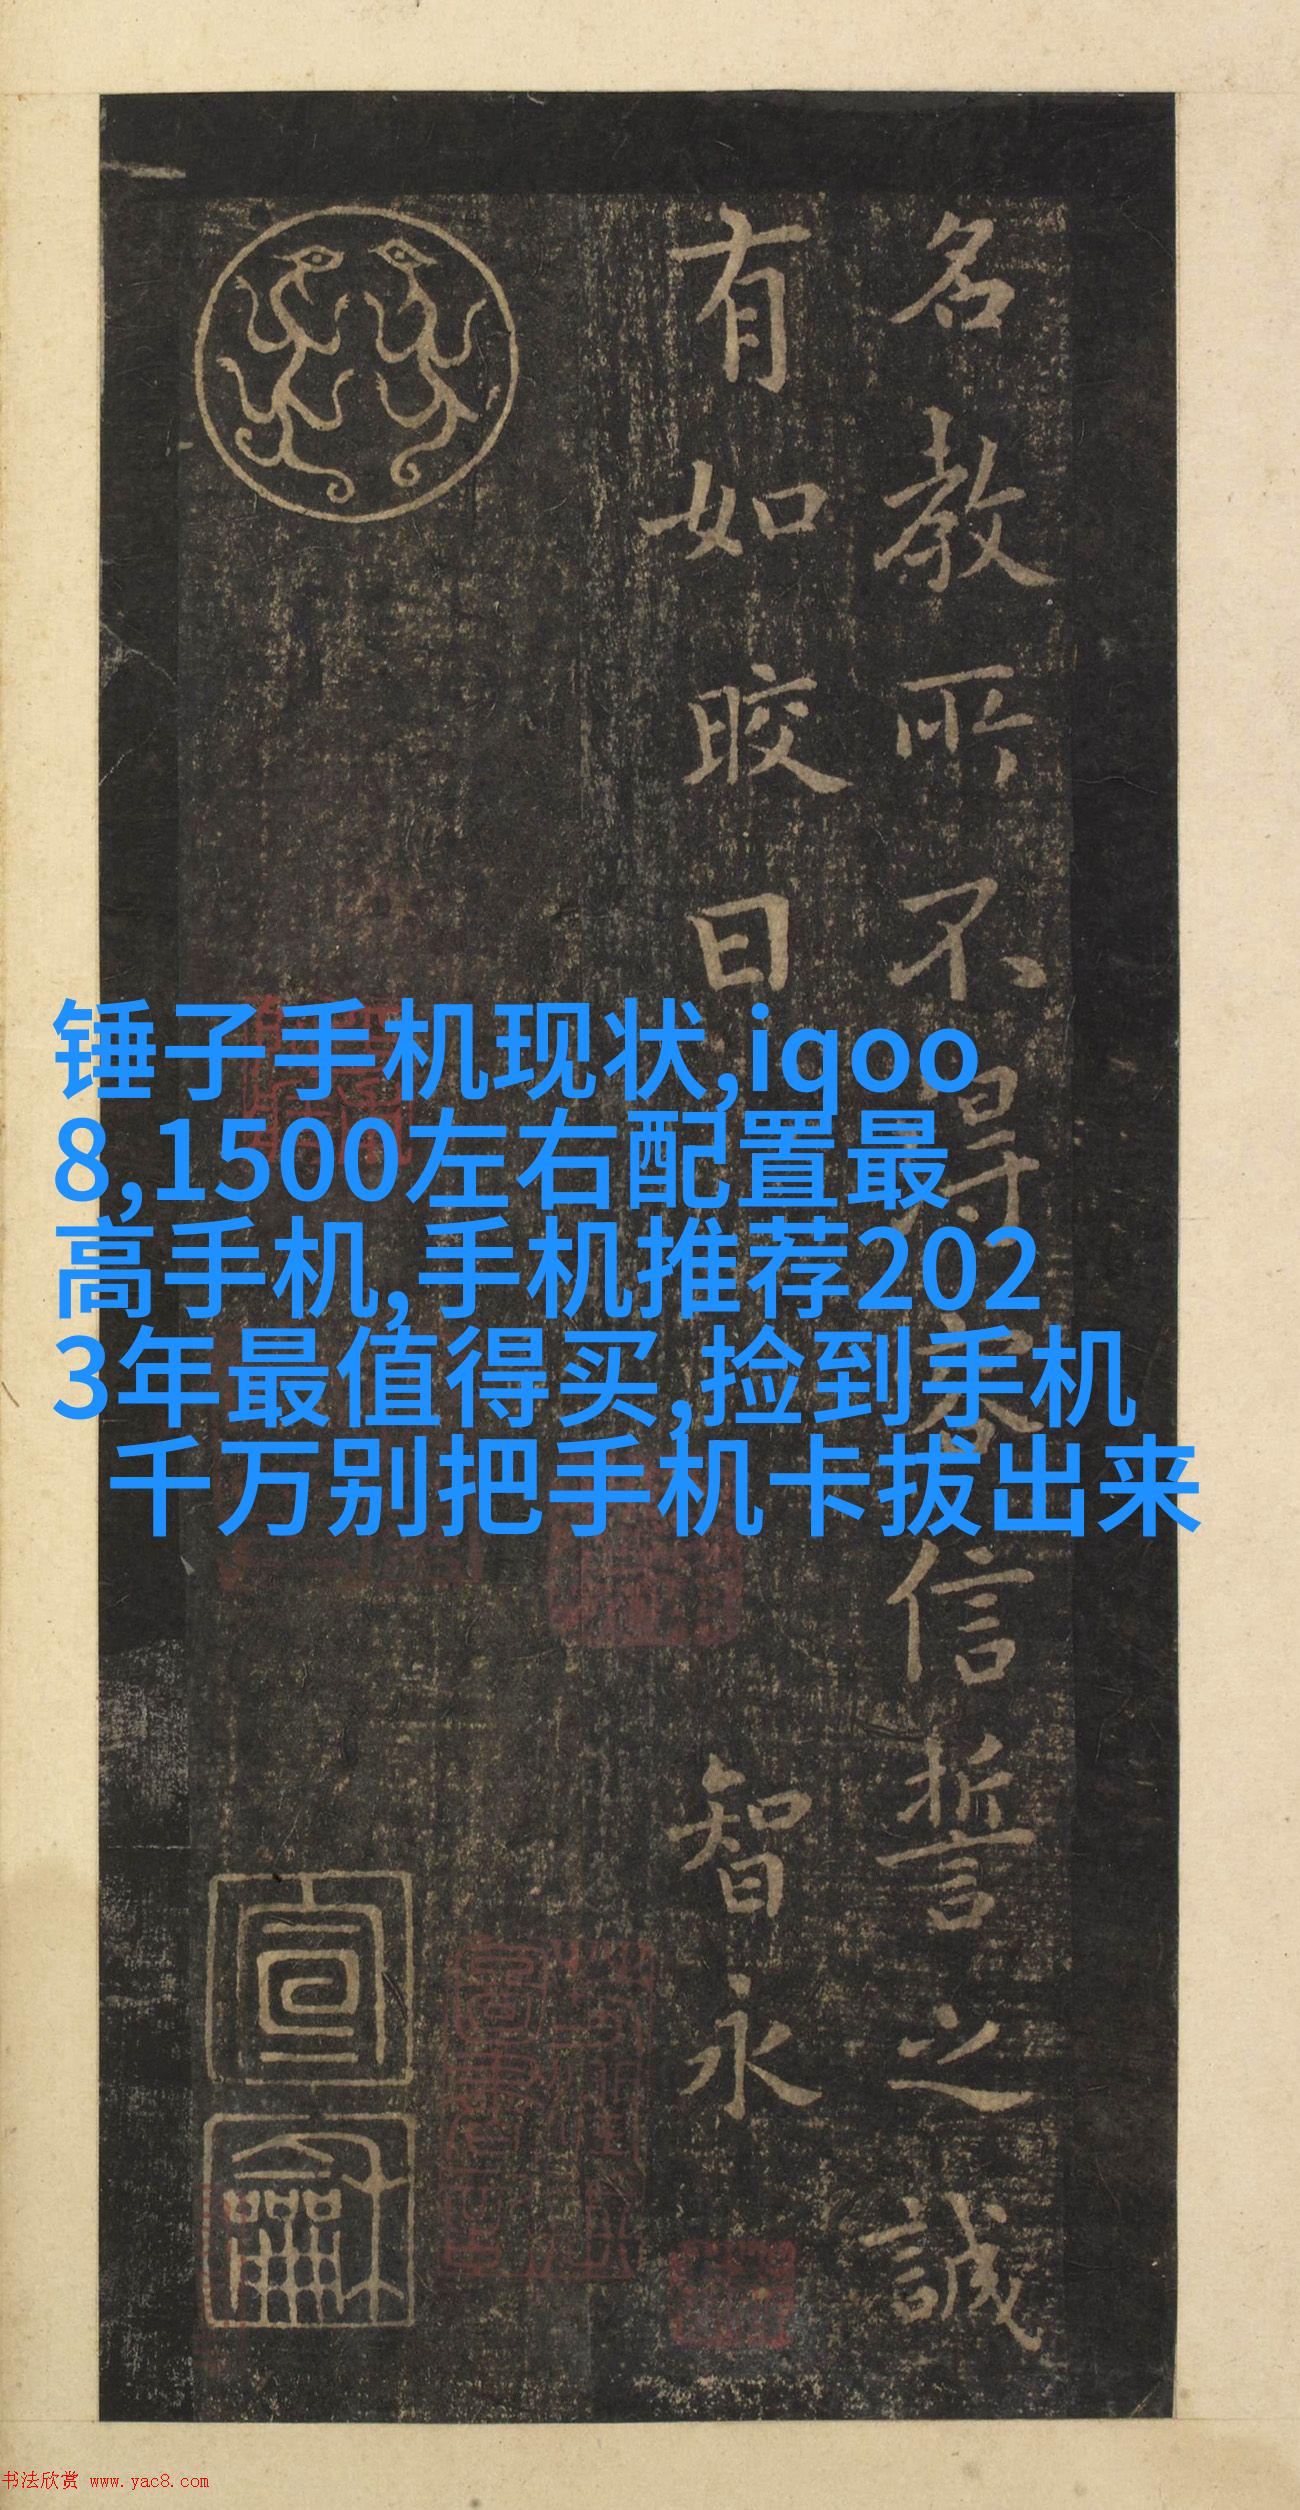 名教所不得容信誓之誠
有如晈日
智永
锤子手机现状,iqoo
8,1500左右配置最
高手机,手机推荐202
3年最值得买,捡到手机
千万别把手机卡拔出来
宣
龢
书法欣赏 www.yac8.com